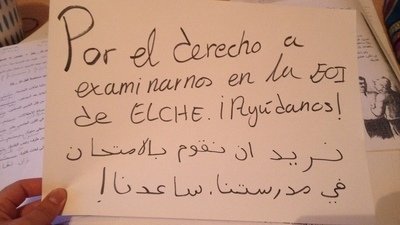 Por el derecho a
examinarnos en la EOI
de ELCHE. ¡Ayúdanos!
نريد ان نقوم بالامتحان
في مدرستنا. ساعدنا!